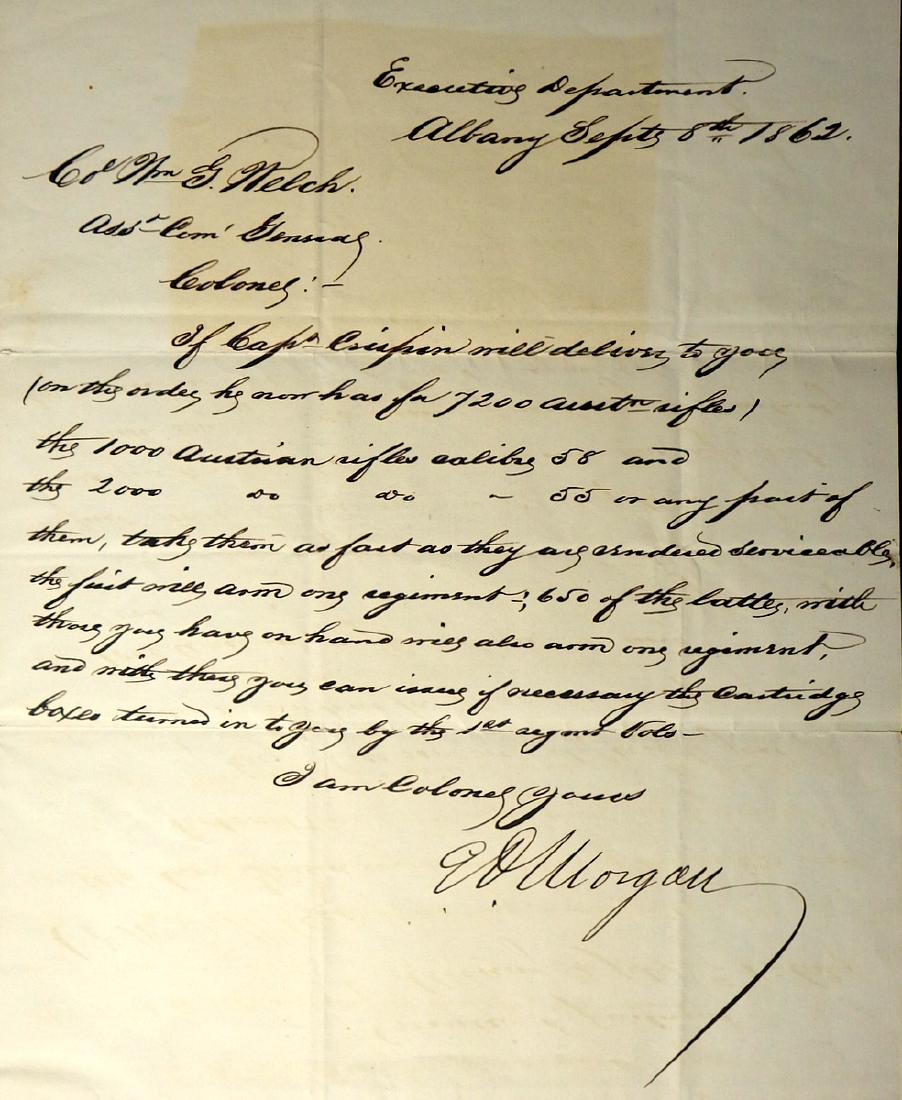 Executive Department.
Albany Septr 8th 1862.
Col Wm G. Welch.
Asst Com' General.
Colonel:-
If Capt Crispin will deliver to you,
(on the order he now has for 7200 Austn rifles)
the 1000 Austrian rifles calibre 58 and
the 2000 do do - 55 or any part of
them, take them as fast as they are rendered serviceable,
the first will arm one regiment; 650 of the latter, with
those you have on hand will also arm one regiment,
and with these you can issue if necessary the Cartridge
boxes turned in to you by the 1st regmt Vols-
I am Colonel yours
E D Morgan